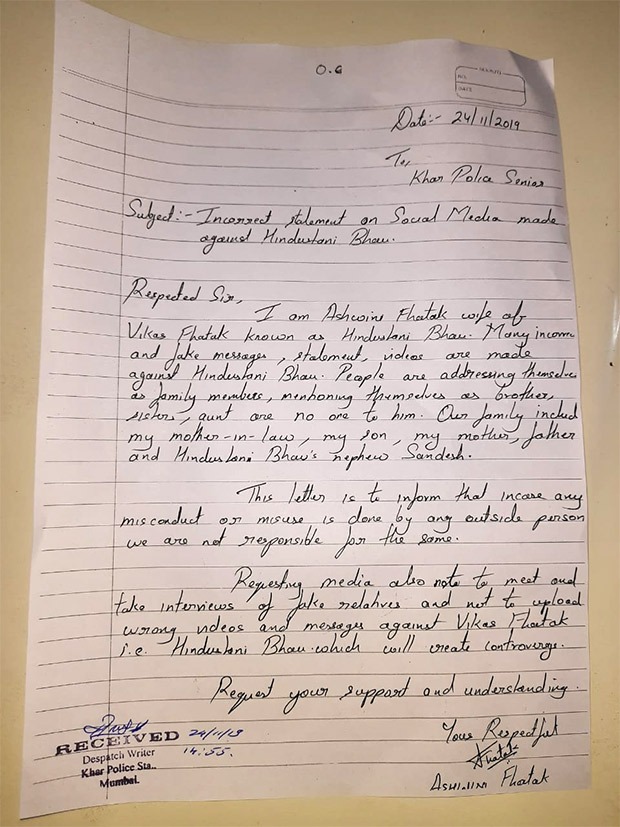 O.C
No.
DATE
Date:- 24/11/2019
To,
Khar Police Senior
Subject:- Incorrect statement on Social Media made
against Hindustani Bhau.
Respected Sir,
I am Ashwini Fhatak wife of
Vikas Fhatak known as Hindustani Bhau. Many incorre
and fake messages, statement, videos are made
against Hindustani Bhau. People are addressing themselve
as family members, mentioning themselves as brother,
sister, aunt are no one to him. Our family includ
my mother-in-law, my son, my mother, father
and Hindustani Bhau's nephew Sandesh.
This letter is to inform that incase any
misconduct or misuse is done by any outside person
we are not responsible for the same.
Requesting media also note to meet and
take interviews of fake relatives and not to upload
wrong videos and messages against Vikas Fhatak
i.e. Hindustani Bhau. which will create controversy.
Request your support and understanding.
Yous Respectful
RECEIVED 24/11/19
Despatch Writer 14:55.
Khar Police Sta..
Mumbai.
ASHWINI Fhatak